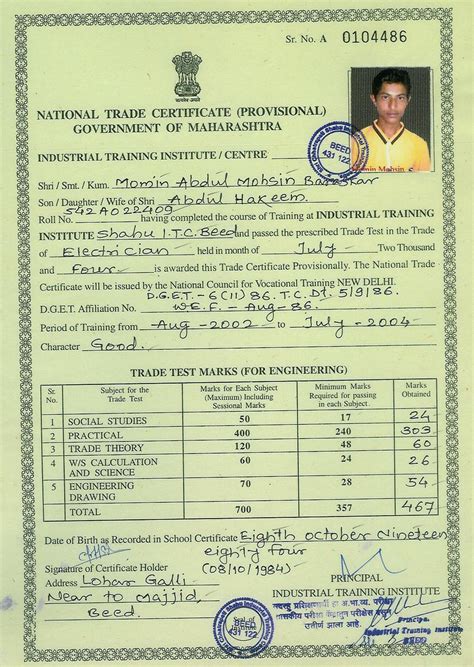 Sr. No. A 0104486
NATIONAL TRADE CERTIFICATE (PROVISIONAL)
GOVERNMENT OF MAHARASHTRA
INDUSTRIAL TRAINING INSTITUTE / CENTRE
BEED
431 122
Momin Mohsin
Shri / Smt. / Kum. Momin Abdul Mohsin Baraskar
Son / Daughter / Wife of Shri Abdul Hakeem.
Roll No. 542A022409 having completed the course of Training at INDUSTRIAL TRAINING
INSTITUTE Shahu I.T.C. Beed and passed the prescribed Trade Test in the Trade
of Electrician held in month of July Two Thousand
and Four is awarded this Trade Certificate Provisionally. The National Trade
Certificate will be issued by the National Council for Vocational Training NEW DELHI.
D.G.E.T. - 6(11) 86. T.C. Dt. 5/9/86.
D.G.E.T. Affiliation No. W.E.F. - Aug - 86.
Period of Training from Aug - 2002 to July - 2004
Character Good.
TRADE TEST MARKS (FOR ENGINEERING)
Sr. No. Subject for the Trade Test Marks for Each Subject (Maximum) Including Sessional Marks Minimum Marks Required for passing in each Subject. Marks Obtained
1 SOCIAL STUDIES 50 17 24
2 PRACTICAL 400 240 303
3 TRADE THEORY 120 48 60
4 W/S CALCULATION AND SCIENCE 60 24 26
5 ENGINEERING DRAWING 70 28 54
TOTAL 700 357 467
Date of Birth as Recorded in School Certificate Eighth October Nineteen
eighty four
(08/10/1984)
Signature of Certificate Holder
Address Lohar Galli
Near to Majjid
Beed.
PRINCIPAL
INDUSTRIAL TRAINING INSTITUTE
BEED
431 122
उत्तीर्ण झाला आहे.
Principal
Industrial Training Institute
BEED